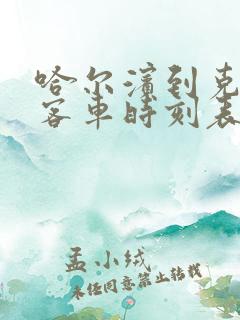 哈尔滨到克
客车时刻表
孟小绒
未经同意禁止转载